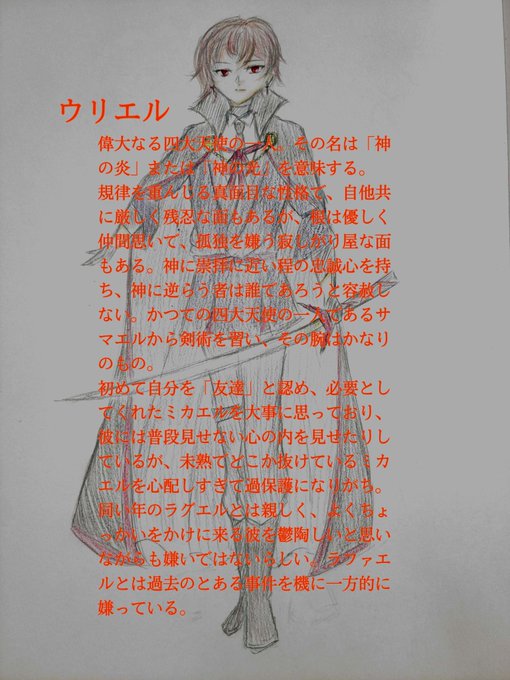 ウリエル
偉大なる四大天使の一人。その名は「神
の炎」または「神の光」を意味する。
規律を重んじる真面目な性格で、自他共
に厳しく残忍な面もあるが、根は優しく
仲間思いで、孤独を嫌う寂しがり屋な面
もある。神に崇拝に近い程の忠誠心を持
ち、神に逆らう者は誰であろうと容赦し
ない。かつての四大天使の一人であるサ
マエルから剣術を習い、その腕はかなり
のもの。
初めて自分を「友達」と認め、必要とし
てくれたミカエルを大事に思っており、
彼には普段見せない心の内を見せたりし
ているが、未熟でどこか抜けているミカ
エルを心配しすぎて過保護になりがち。
同い年のラグエルとは親しく、よくちょ
っかいをかけに来る彼を鬱陶しいと思い
ながらも嫌いではないらしい。ラファエ
ルとは過去のとある事件を機に一方的に
嫌っている。